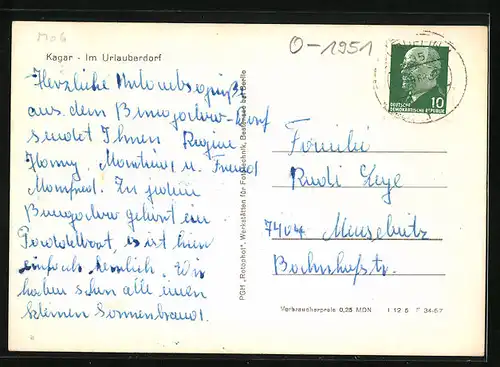 1706
O-1951
Kagar - Im Urlauberdorf
Herzliche Urlaubsgrüße
aus dem Bungalow-Dorf
sendet Ihnen Regine
Hanny, u. Freund
Manfred. Zu jedem
Bungalow gehört ein
Paddelboot, es ist hier
einfach herrlich. Wir
haben schon alle einen
kleinen Sonnenbrand.
PGH „Rotophot", Werkstätten für Fototechnik, Bestensee bei Berlin
10
DEUTSCHE
DEMOKRATISCHE REPUBLIK
Familie
Rudi
7404 Meuselwitz
Bahnhofstr.
Verbraucherpreis 0,25 MDN I 12 6 F 34-67